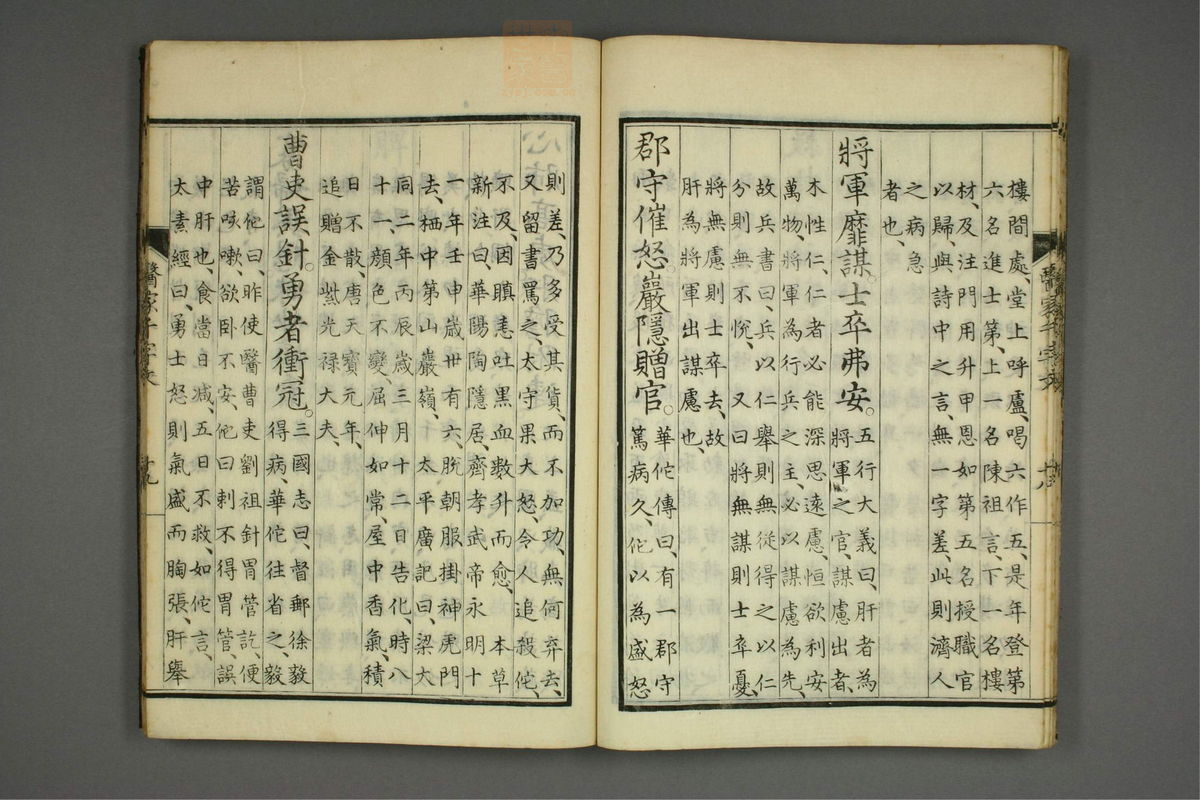 樓間處、堂上呼盧、喝六作五、是年登第
六名進士第、上一名陳祖言、下一名樓
材、及注門用升甲恩如第五名授職官
以歸、與詩中之言、無一字差、此則濟人
之病急
者也、
將軍靡謀。士卒弗安。五行大義曰、肝者為
將軍之官、謀慮出者、
本性仁、仁者必能深思遠慮、恒欲利安
萬物、將軍為行兵之主、必以謀慮為先、
故兵書曰、兵以仁舉則無從得之以仁
分則無不悅、又曰將無謀則士卒憂、
將無慮則士卒去、故
肝為將軍出謀慮也、
郡守催怒。巖隱贈官。華佗傳曰、有一郡守
篤病久、佗以為盛怒
則差、乃多受其貨、而不加功、無何弃去、
又留書罵之、太守果大怒、令人追殺佗、
不及、因瞋恚吐黑血數升而愈、本草
新注曰、華陽陶隱居、齊孝武帝永明十
一年壬申歲卅有六、脫朝服掛神虎門
去、栖中第山巖嶺、太平廣記曰、梁大
同二年丙辰歲三月十二日告化、時八
十一、顏色不變、屈伸如常、屋中香氣、積
日不散、唐天寶元年、
追贈金紫光祿大夫、
曹吏誤針。勇者衝冠。三國志曰、督郵徐毅
得病、華佗往省之、毅
謂佗曰、昨使醫曹吏劉祖針胃管訖、便
苦咳嗽、欲卧不安、佗曰刺不得胃管、誤
中肝也、食當日減、五日不救、如佗言、
太素經曰、勇士怒則氣盛而胸張、肝舉
醫家千字文
十八
醫家千字文
十九